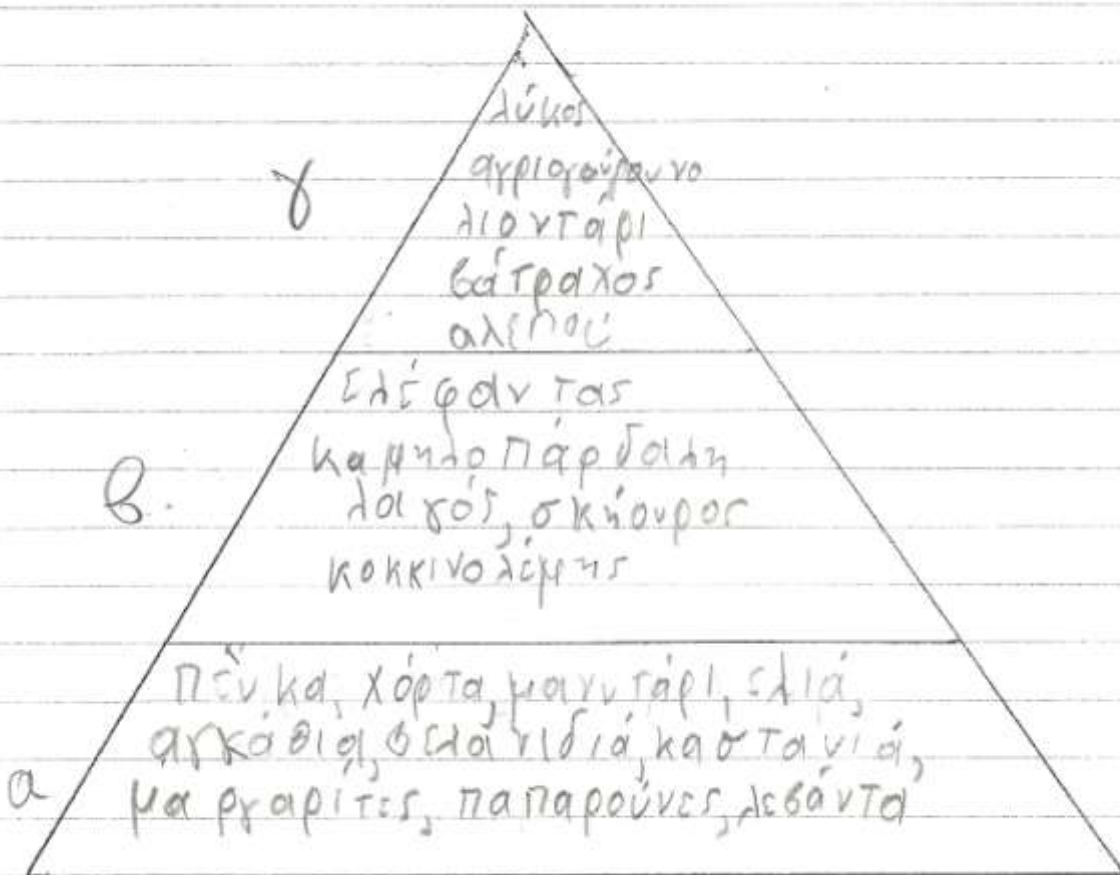 λύκος
γ
αγριογούρουνο
λιοντάρι
βάτραχος
αλεπού
ελέφαντας
καμηλοπάρδαλη
β.
λαγός, σκήουρος
κοκκινολέμης
πεύκα, χόρτα, μανιτάρι, ελιά,
αγκάθια, βελανιδιά, καστανιά,
α
μαργαρίτες, παπαρούνες, λεβάντα